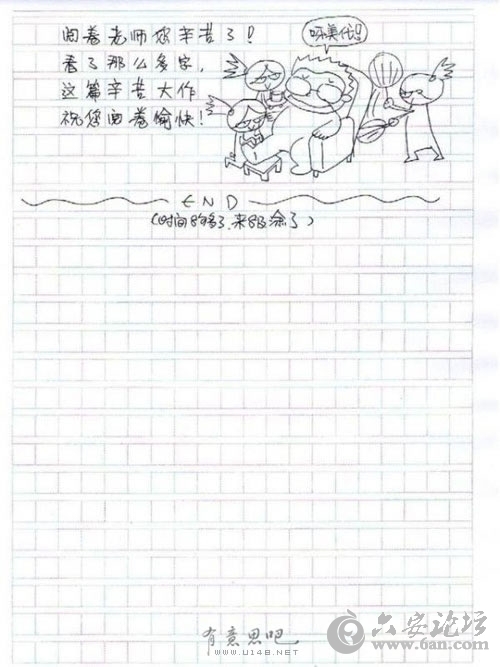 阅卷老师您辛苦了!
看了那么多字,
这篇辛苦大作
祝您阅卷愉快!
呀美代!!
END
(时间不够了,来不及涂了)
有意思吧
WWW.U148.NET
六安论坛
www.6an.com